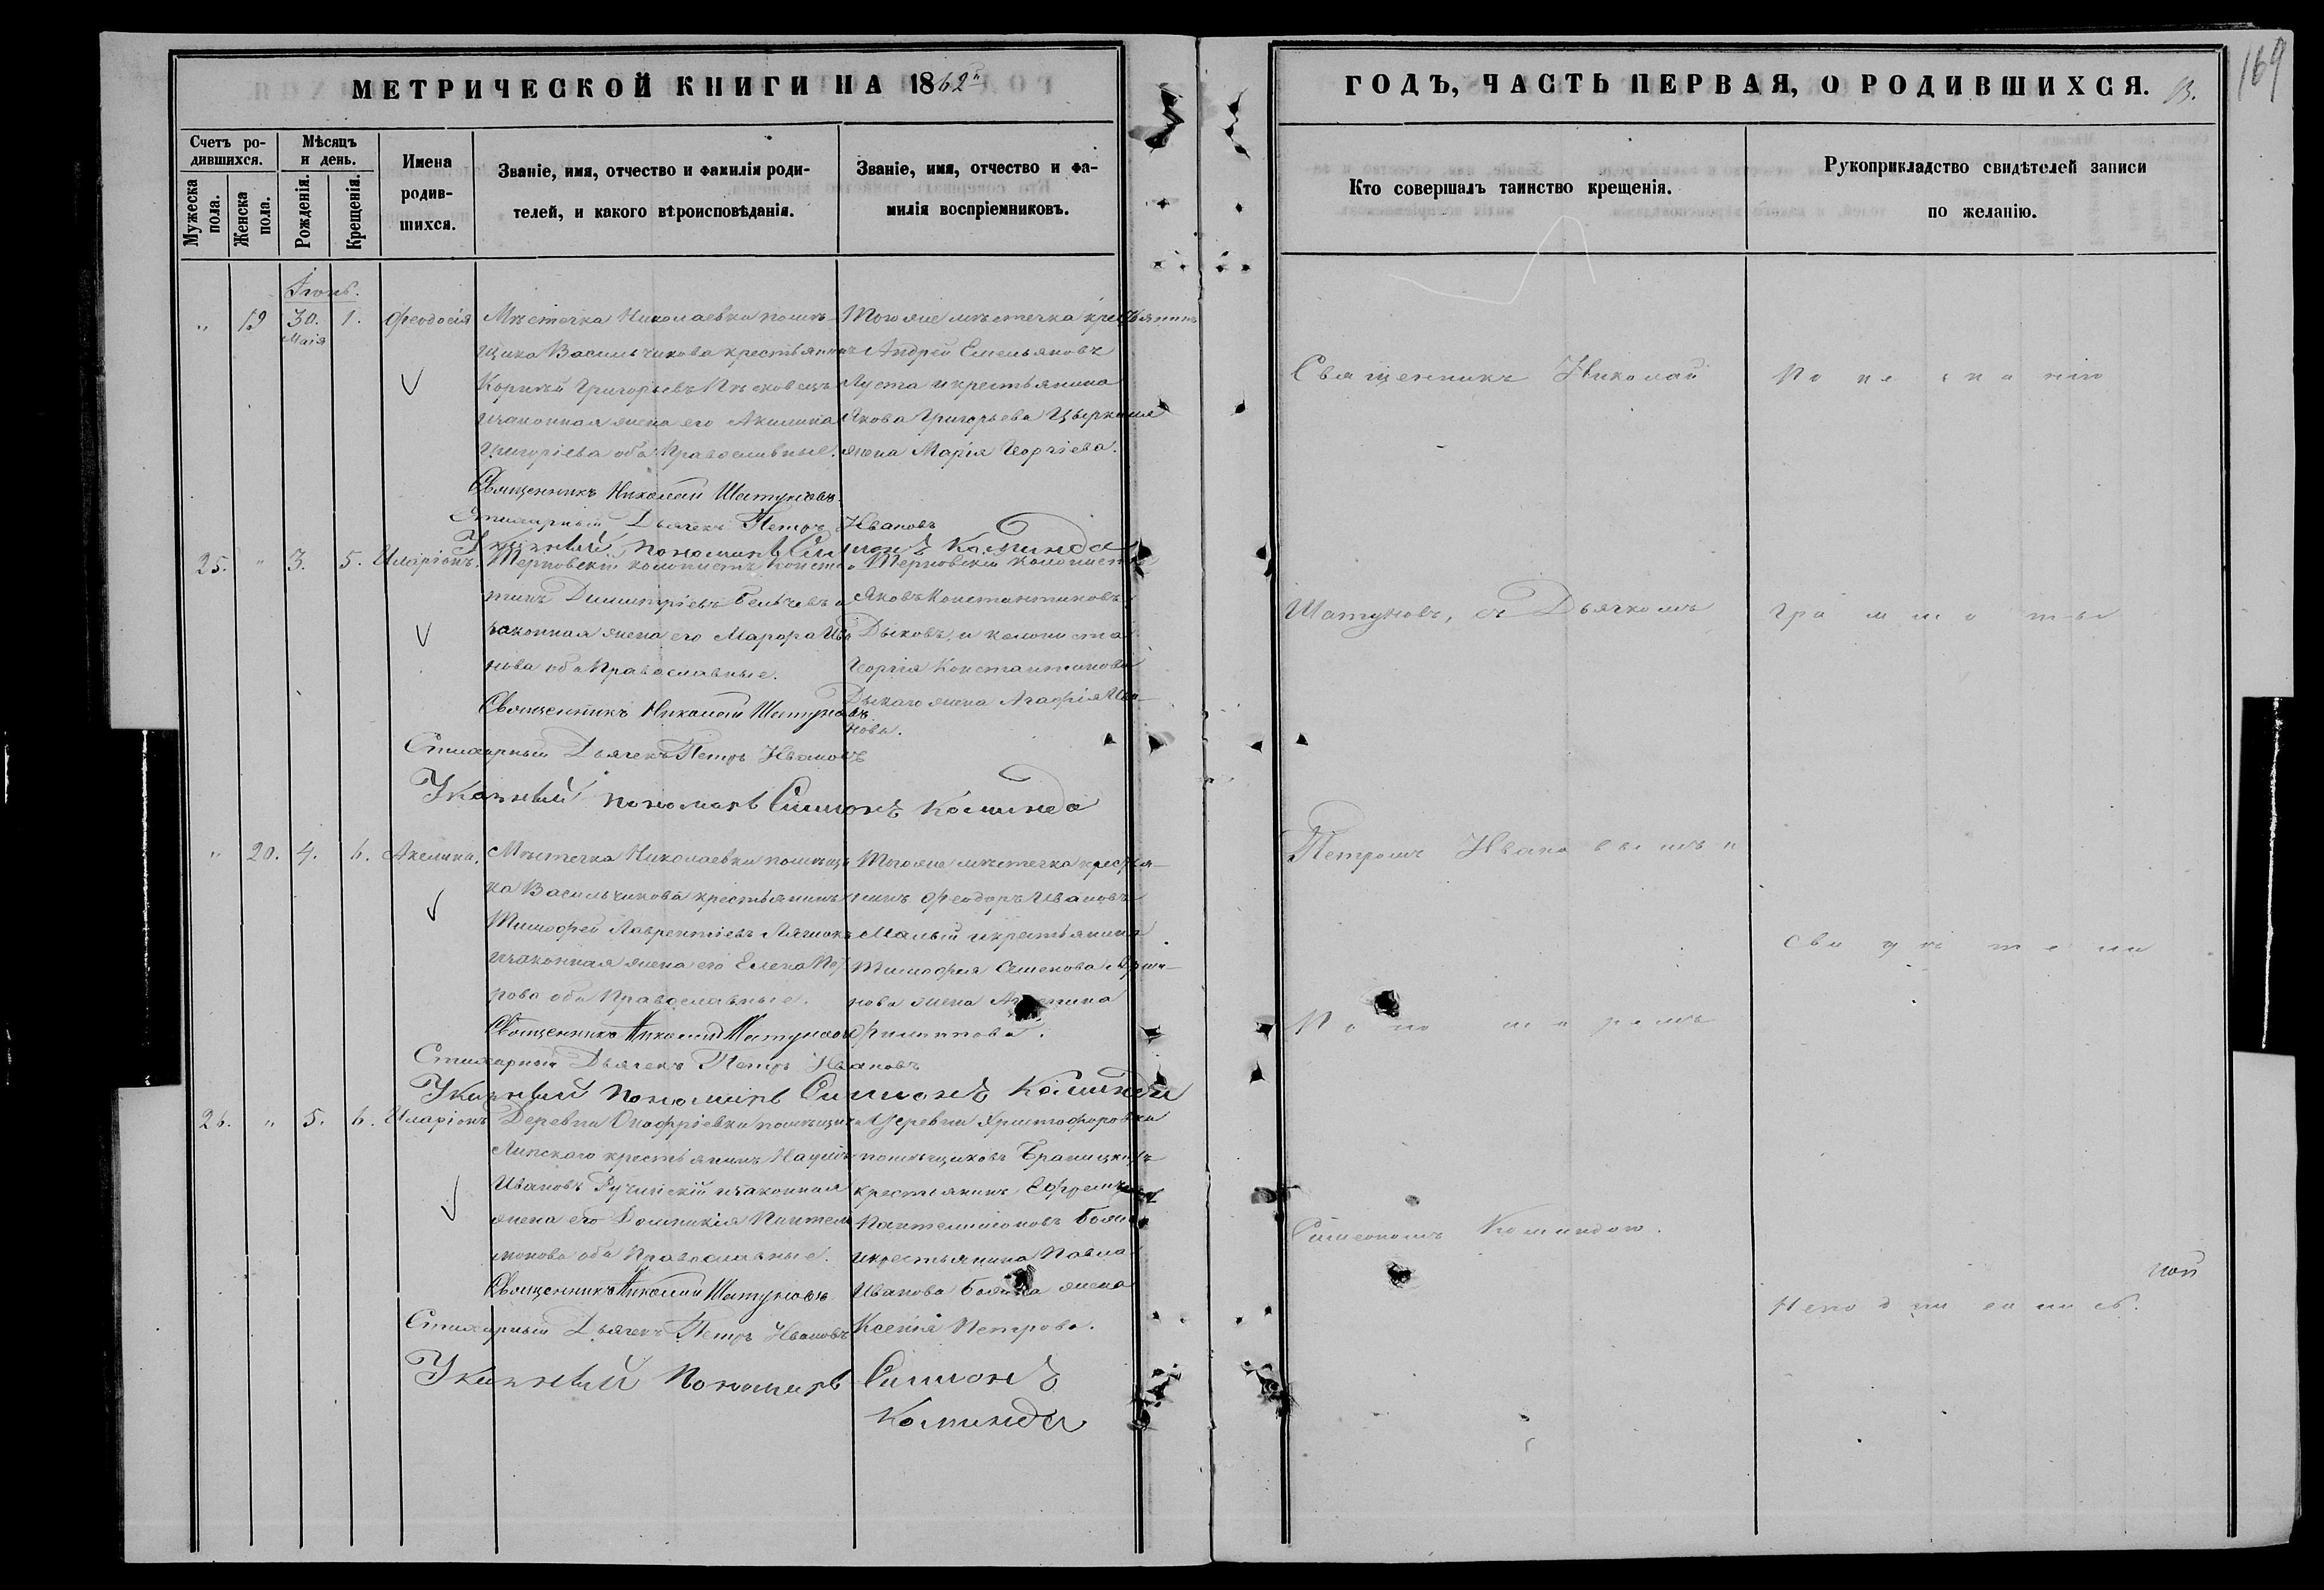 МЕТРИЧЕСКОЙ КНИГИ НА 1862й
ГОДЪ, ЧАСТЬ ПЕРВАЯ, О РОДИВШИХСЯ.
169
Счетъ ро-
дившихся.
Мѣсяцъ
и день.
Мужеска пола.
Женска пола.
Рожденія.
Крещенія.
Имена
родив-
шихся.
Званіе, имя, отчество и фамилія роди-
телей, и какого вѣроисповѣданія.
Званіе, имя, отчество и фа-
милія воспріемниковъ.
Кто совершалъ таинство крещенія.
Рукоприкладство свидѣтелей записи
по желанію.
Іюнь.
" 19 30. Маія 1. Феодосія
Мѣстечка Николаевки помѣ-
щика Васильчикова крестьянинъ
Корнѣй Григорьевъ Пѣсковецъ
и законная жена его Акилина
Григоріева оба Православные.
Того же мѣстечка крестьянинъ
Андрей Емельяновъ
Луста и крестьянина
Якова Григорьева
жена Марія Георгіева.
Священникъ Николай Шатуновъ
Стихарный Дьячекъ Петръ Ивановъ
Указный пономарь Симонъ Коминда
25. " 3. 5. Иларіонъ.
Терновскій колонистъ Конста
тинъ Димитріевъ Бельчевъ и
законная жена его Марфа Ива
нова оба Православные.
Терновскій колонистъ
Яковъ Константиновъ
Дыковъ, и колониста
Георгія Константинова
Дыкаго жена Агафія Ива-
нова.
Священникъ Николай Шатуновъ
Стихарный Дьячекъ Петръ Ивановъ
Указный пономарь Симонъ Коминда
" 20. 4. 6. Акилина.
Мѣстечка Николаевки помѣщи
ка Васильчикова крестьянинъ
Тимофей Лаврентіевъ
и законная жена его Елена Пет
рова оба Православные.
Того же мѣстечка крестья-
нинъ Феодоръ Ивановъ
Малый и крестьянина
Тимофея Семенова
нова жена
Филиппова.
Священникъ Николай Шатуновъ
Стихарный Дьячекъ Петръ Ивановъ
Указный пономарь Симонъ Коминда
26. " 5. 6. Иларіонъ
Деревни Онофріевки помѣщика
Липскаго крестьянинъ Наумъ
Ивановъ Ручинскій и законная
жена его Домникія Пантели
монова оба Православные.
Деревни Христофоровки
помѣщиковъ Браницкихъ
крестьянинъ Ефремъ
Пантелимоновъ
и крестьянина Павла
Иванова жена
Ксенія Петрова.
Священникъ Николай Шатуновъ
Стихарный Дьячекъ Петръ Ивановъ
Указный Пономарь Симонъ
Коминда
Священникъ Николай
Шатуновъ, съ Дьячкомъ
Петромъ Ивановымъ и
Пономаремъ
Симеономъ Коминдою.
По незнанію
грамоты
свидѣтели
неподписались.